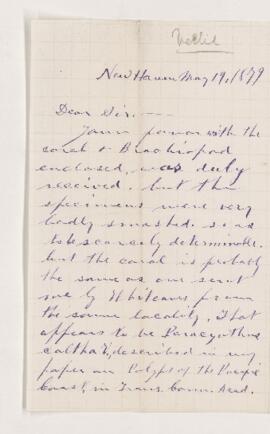 New Haven May 19, 1879
Dear Sir.—
Yours with the
coral & Brachiopod
enclosed, was duly
received. but the
specimens were very
badly smashed. so as
to be scarcely determinable.
but the coral is probably
the same as one sent
me by Whiteaves from
the same locality. That
appears to be Paracyathus
caltha V., described in my
paper on Polyps of the Pacific
Coast, in Trans. Conn. Acad.